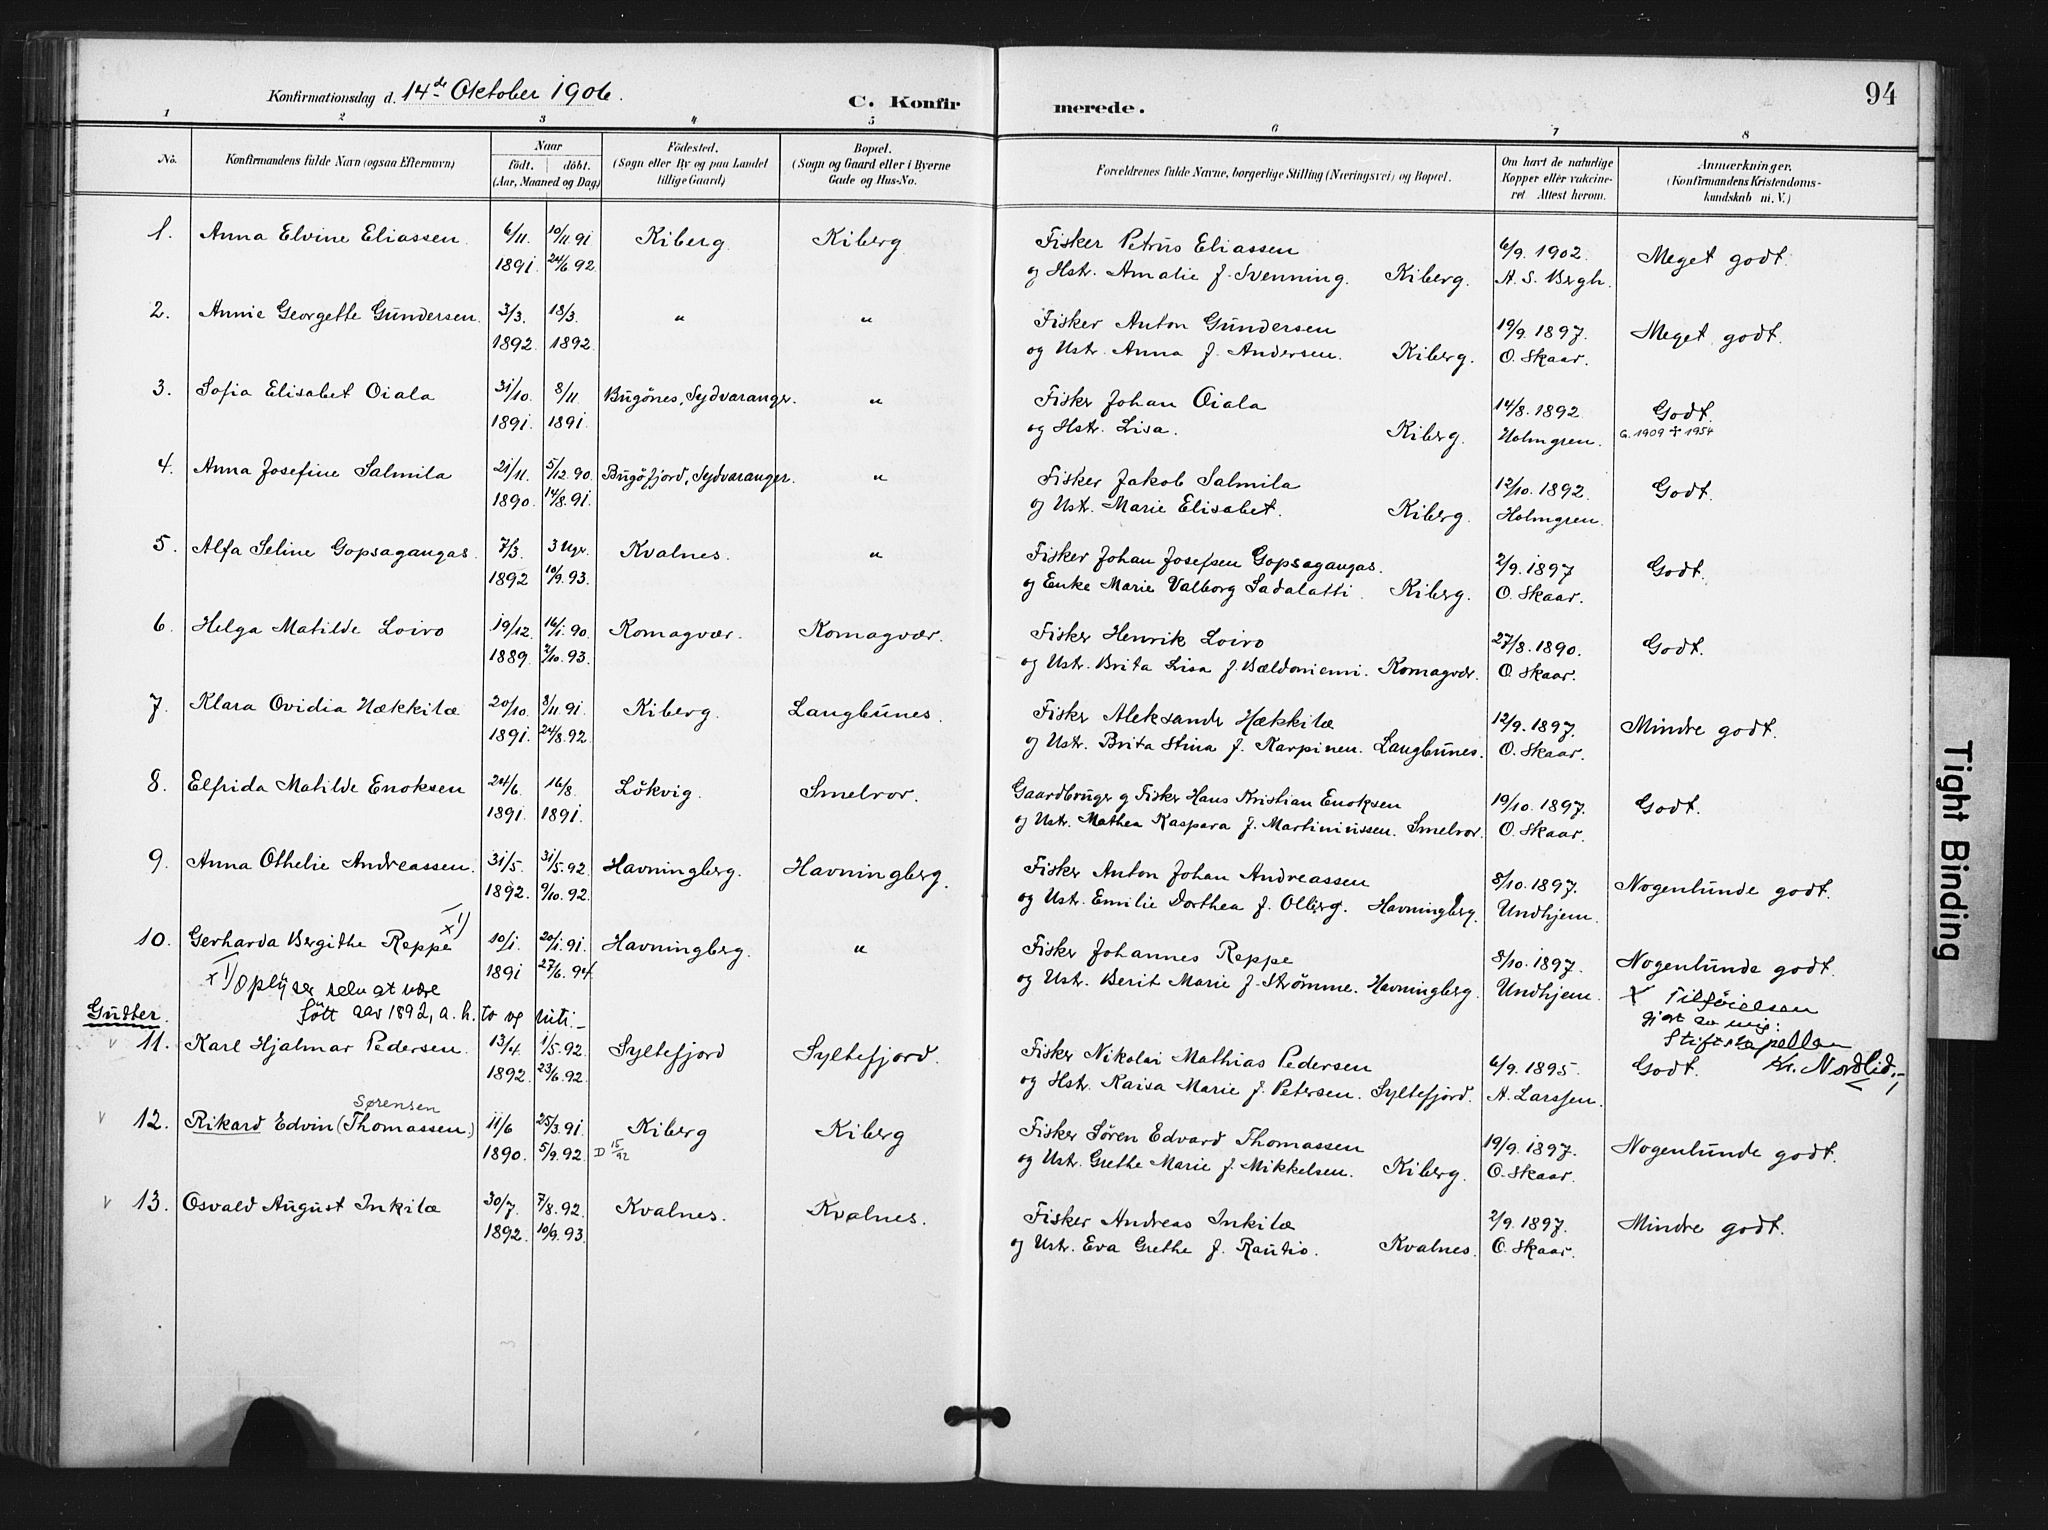 Konfirmationsdag d. 14de Oktober 1906.
C. Konfirmerede.
94
1 2 3 4 5 6 7 8
No. Konfirmandens fulde Navn (ogsaa Efternavn) Naar født. døbt. (Aar, Maaned og Dag) Fødested. (Sogn eller By og paa Landet tillige Gaard) Bopæl. (Sogn og Gaard eller i Byerne Gade og Hus-No. Forældrenes fulde Navne, borgerlige Stilling (Næringsvei) og Bopæl. Om havt de naturlige Kopper eller vakcineret Attest herom. Anmærkninger, (Konfirmandens Kristendomskundskab m. V.)
1. Anna Elvine Eliassen 6/11. 10/11.91 Kiberg. Kiberg. Fisker Petrus Eliassen 6/9. 1902. Meget godt.
1891. 24/6.92. og Hstr. Amalie f. Svenning. Kiberg. A. S. Bergh.
2. Annie Georgette Gundersen. 3/3. 18/3. " " Fisker Anton Gundersen 19/9. 1897. Meget godt.
1892. 1892. og Ustr. Anna f. Andersen. Kiberg. O. Skaar.
3. Sofia Elisabet Oiala 31/10. 8/11. Bugønes, Sydvaranger. " Fisker Johan Oiala 14/8. 1892 Godt.
1891. 1891. og Hstr. Lisa. Kiberg. Holmgren. G. 1909 + 1954
4. Anna Josefine Salmila 21/11. 5/12.90. Bugøfjord, Sydvaranger. " Fisker Jakob Salmila 12/10. 1892. Godt.
1890. 14/8.91. og Ustr. Marie Elisabet. Kiberg. Holmgren.
5. Alfa Seline Gopsagangas. 7/3. 3 Ugr. Kvalnes. " Fisker Johan Josefsen Gopsagangas. 2/9. 1897 Godt.
1892 10/9.93. og Enke Marie Valborg Sadalatti. Kiberg. O. Skaar.
6. Helga Matilde Loivo 19/12. 16/1.90. Komagvær. Komagvær. Fisker Henrik Loivo 27/8. 1890. Godt.
1889. 2/10.93. og Ustr. Brita Lisa f. Bældoniemi. Komagvær. O. Skaar.
7. Klara Ovidia Hækkilæ 20/10. 8/11.91. Kiberg. Langbunes. Fisker Aleksandr Hækkilæ 12/9. 1897. Mindre godt.
1891. 24/8.92. og Ustr. Brita Stina f. Karpinen. Langbunes. O. Skaar.
8. Elfrida Matilde Enoksen 24/6. 16/8. Løkvig. Smelror. Gaardbruger og Fisker Hans Kristian Enoksen 19/10. 1897. Godt.
1891. 1891. og Ustr. Mathea Kaspara f. Martinivissen. Smelror. O. Skaar.
9. Anna Othelie Andreassen. 31/5. 31/5.92. Havningberg. Havningberg. Fisker Anton Johan Andreassen 8/10. 1897. Nogenlunde godt.
1892. 9/10.92. og Ustr. Emilie Dorthea f. Olberg. Havningberg. Undhjem.
10. Gerharda Bergithe Reppe x 1/ 10/1. 20/1.91. Havningberg. " Fisker Johannes Reppe 8/10. 1897. Nogenlunde godt.
1891 27/6.94. og Ustr. Berit Marie f. Strømme. Havningberg. Undhjem. x Tilføielsen
x 1/ Oplyser selv at være
født aar 1892, a. h. to og niti.- gjort av mig:
Stiftskapellan
Kr. Nordlid.-
Gudter.
v 11. Karl Hjalmar Pedersen. 13/4. 1/5.92. Syltefjord Syltefjord. Fisker Nikolai Mathias Pedersen 6/9. 1895 Godt.
1892. 23/6.92. og Hstr. Kaisa Marie f. Petersen. Syltefjord. A. Larssen.
Sørensen
v 12. Rikard Edvin (Thomassen.) 11/6 25/3.91. Kiberg Kiberg Fisker Søren Edvard Thomassen 19/9. 1897. Nogenlunde godt.
1890. 5/9.92. D 15/92 og Ustr. Grethe Marie f. Mikkelsen. Kiberg. O. Skaar.
v 13. Osvald August Inkilæ 30/7. 7/8.92. Kvalnes. Kvalnes. Fisker Andreas Inkilæ 2/9. 1897. Mindre godt.
1892. 10/9.93. og Ustr. Eva Grethe f. Rautio. Kvalnes. O. Skaar.
Tight Binding